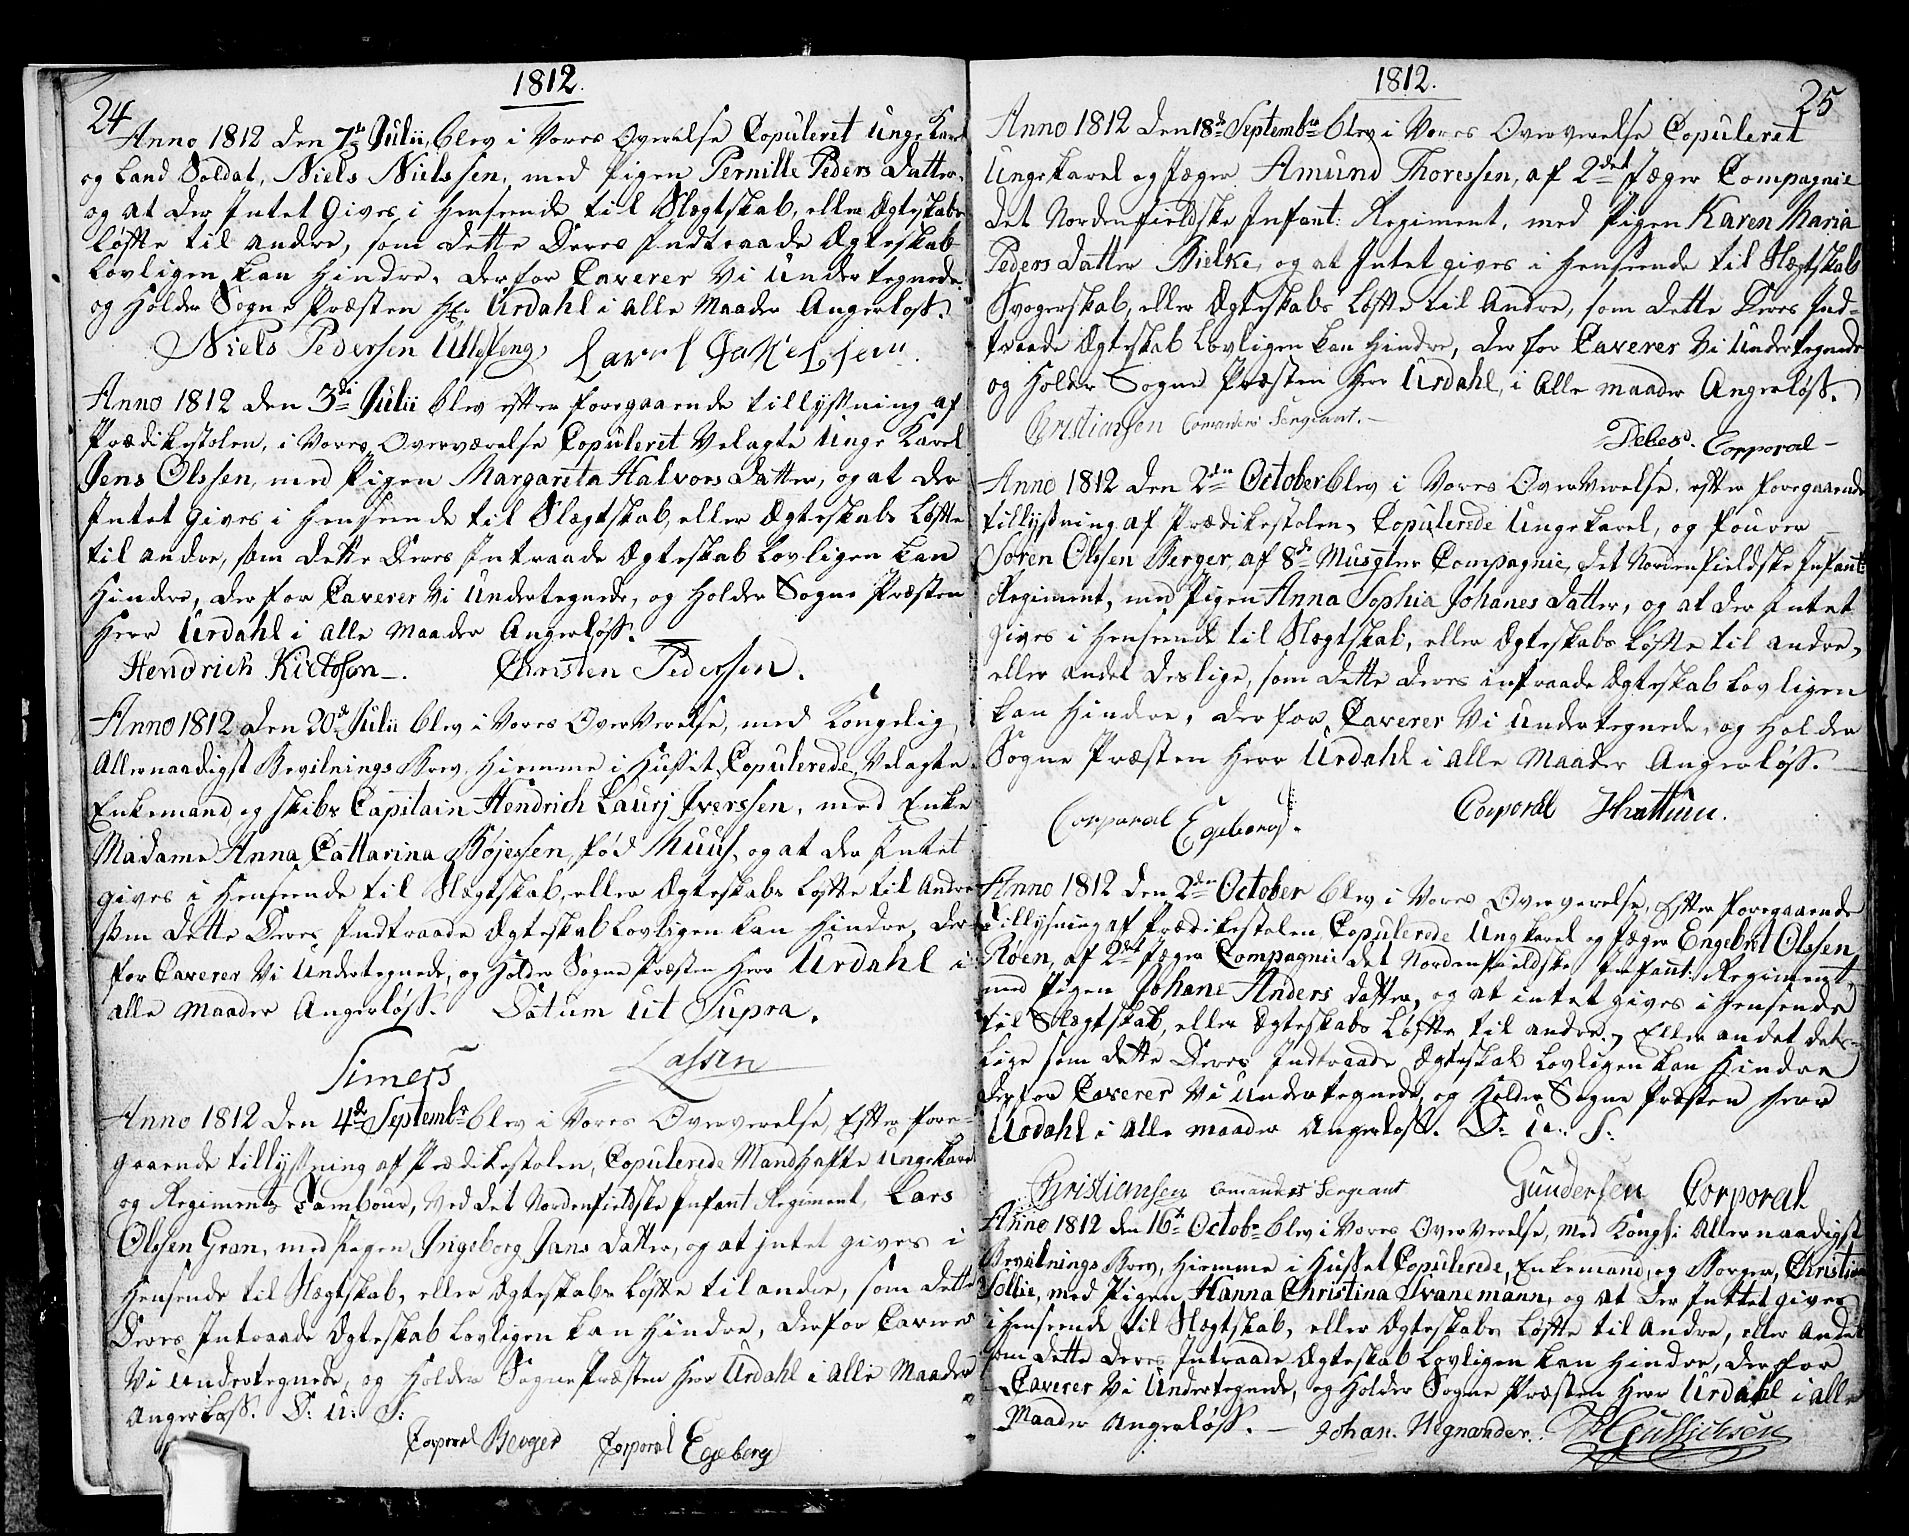 1812.
24
Anno 1812 den 7de Julii, blev i Vores Overelse Copuleret Unge Karl
og Land Soldat, Niels Nielssen, med Pigen Pernille Peders Datter,
og at der Intet Gives i Henseende til Slægtskab, eller Ægteskabs
Løfte til andre, som dette Deres Indtraade Ægteskab
Lovligen kan Hindre, derfor Caverer Vi Undertegnede
og Holder Sogne Præsten Hr. Urdahl i alle Maader Angerløst.
Niels Pedersen Ullesteng,
Anno 1812 den 3die Julii blev efter foregaaende tillysning af
Prædikestolen, i Vores Overværelse Copuleret Velagte Unge Karl
Jens Olssen, med Pigen Margareta Halvors Datter, og at der
Intet Gives i Henseende til Slægtskab, eller Ægteskabs Løfte
til andre, som dette Deres Intraade Ægteskab Lovligen kan
Hindre, derfor Caverer Vi Undertegnede, og Holder Sogne Præsten
Herr Urdahl i alle Maader Angerløss.
Hendrich Christen Pedersen.
Anno 1812 den 20de Julii blev i Vores OverVerelse, med Kongelig
Allernaadigst Bevilnings Brev, Hiemme i Huset Copulerede, Velagte
Enkemand og skibs Capitain Hendrich Laurj Iverssen, med Enke
Madame Anna Cattarina Bøjessen, fød Muus, og at der Intet
gives i Henseende til Slægtskab, eller Ægteskabs Løfte til Andre
som dette Deres Indtraade Ægteskab Lovligen kan Hindre, der
for Caverer Vi Undertegnede, og Holder Sogne Præsten Herr Urdahl i
alle Maader Angerløss. Datum ut Supra.
Simers Lassen
Anno 1812 den 4de Septembr blev i Vores Oververelse, Efter fore-
gaaende tillysning af Prædikestolen, Copulerede Mandhafte Ungekarl
og Regiments Tambour, ved det Nordenfieldske Infant Regiment, Lars
Olssen Gran, med Pigen Ingeborg Jans Datter, og at intet gives i
Hensende til Slægtskab, eller Ægteskabs Løfte til andre, som dette
Deres Intraade Ægteskab Lovligen kan Hindre, derfor Caverer
Vi undertegnede, og Holder Sogne Præsten Herr Urdahl i alle Maader
Angerløss. D: u: S:
Corporal Berger Corporal Egeberg
1812.
25
Anno 1812 den 18de Septembr blev i Vores Oververelse Copuleret
Ungekarl og Jæger Amund Thoressen, af 2det Jæger Compagnie
det Nordenfieldske Infant: Regiment, med Pigen Karen Maria
Peders Datter Bielke, og at Intet gives i Henseende til Slægtskab
Svogerskab, eller Ægteskabs Løfte til Andre, som dette Deres Ind-
traade Ægteskab Lovligen kan Hindre, derfor Caverer Vi Undertegnede
og Holder Sogne Præsten Herr Urdahl, i Alle maader Angerløss.
Christiansen Comanders Sergeant.
Debes. Corporal
Anno 1812 den 2den October blev i Vores OverVerelse, efter foregaaende
tillysning af Prædikestolen, Copulerede Ungekarl, og fourer
Søren Olssen Berger, af 8de Musqter Compagnie, det Nordenfieldske Infant
Regiment, med Pigen Anna Sophia Johanes Datter, og at der Intet
gives i Henseende til Slægtskab, eller Ægteskabs Løfte til andre,
eller andet deslige, som dette deres intraade Ægteskab Lovligen
kan Hindre, derfor Caverer Vi Undertegnede, og Holder
Sogne Præsten Herr Urdahl i alle Maader Angerløss.
Corporal Egeberg. Corporal
Anno 1812 den 2den October blev i Vores Oververelse, Efter foregaaende
tillysning af Prædikestolen, Copulerede Ungkarl og Jæger Engebret Olssen
Røen, af 2det Jæger Compagnie det Nordenfieldske Infant: Regiment,
med Pigen Johane Anders Datter, og at intet gives i Hensende
til Slægtskab, eller Ægteskabs Løfte til andre, Eller andet des-
lige som dette Deres Indtraade Ægteskab Lovligen kan Hindre
derfor Caverer Vi Undertegnede, og Holder Sogne Præsten Herr
Urdahl i alle maader Angerløss. D: u: S:
Christiansen Comanders Sergeant Gundersen Corporal
Anno 1812 den 16de Octobr blev i Vores OverVerelse, med Kongl: Allernaadigst
Bevilnings Brev, Hiemme i Huset Copulerede, Enkemand, og Borger, Christian
Sollie, med Pigen Hanna Christina Svanemann, og at der Inttet gives
i Henseende til Slægtskab, eller Ægteskabs Løfte til Andre, eller Andet
som dette deres Intraade Ægteskab Lovligen kan Hindre, derfor
Caverer Vi Undertegnede, og Holder Sogne Præsten Herr Urdahl i alle
Maader Angerløss. Johan.